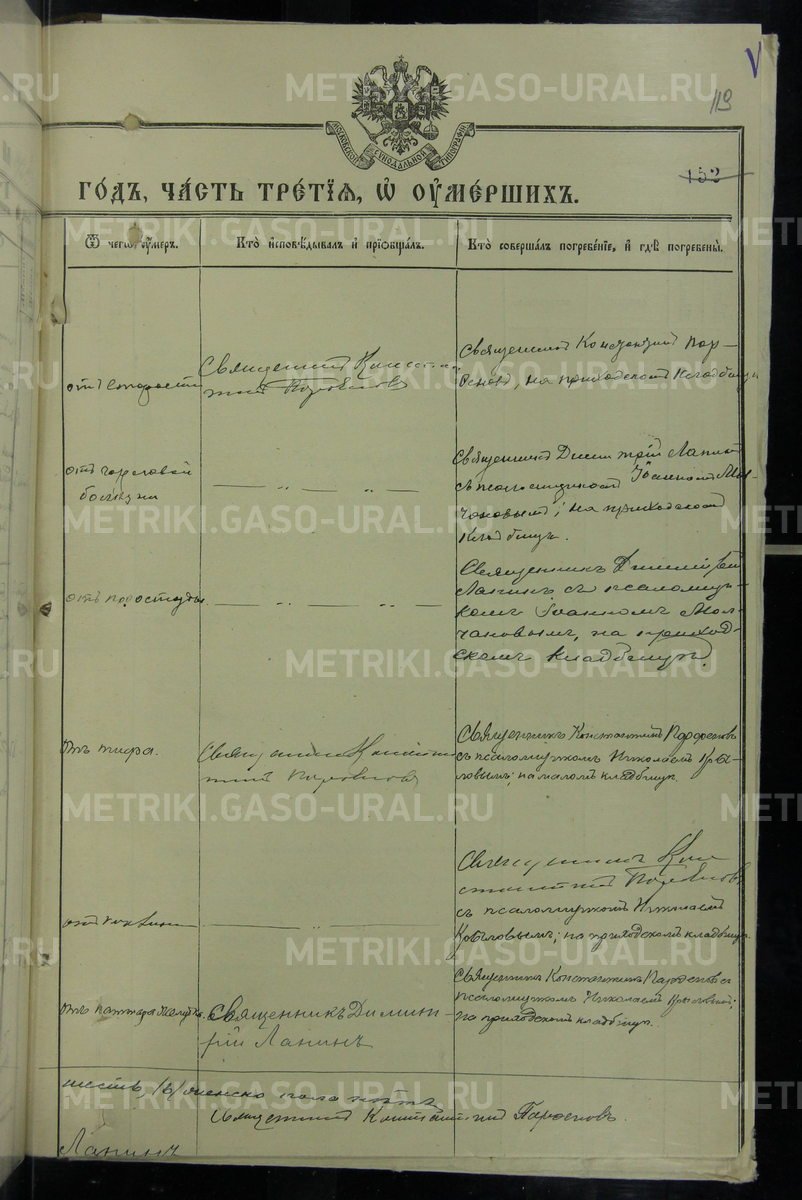 119
МОСКОВСКОЙ СѴНОДАЛЬНОЙ ТИПОГРАФІИ
152
ГО́ДЪ, ЧА́СТЬ ТРЕ́ТІѦ, Ѡ҆ ОУ҆МЕ́РШИХЪ.
Ѿ чегѡ̀ ᲂу҆́меръ.
Кто̀ и҆сповѣ́дывалъ и҆ приѡбща́лъ.
Кто̀ соверша́лъ погребе́нїе, и҆ гдѣ̀ погребены̀.
отъ старости
Священникъ Констан-
тинъ Парѳеновъ
Священникъ Константинъ Пар-
ѳеновъ, на приходскомъ кладбищѣ
отъ горловой
болѣзни
— „ „ —
Священникъ Димитрій Лапинъ
съ псаломщикомъ Іоанномъ Мол-
чановымъ; на приходскомъ
кладбищѣ.
отъ простуды
— „ „ —
Священникъ Димитрій
Лапинъ съ псаломщи-
комъ Іоанномъ Мол-
чановымъ, на приход-
скомъ кладбищѣ.
отъ тифа.
Священникъ Констан-
тинъ Парѳеновъ
Священникъ Константинъ Парѳеновъ
съ псаломщикомъ Николаемъ
на маломъ кладбищѣ.
— „ —
Священникъ Кон-
стантинъ Парѳеновъ
съ псаломщикомъ Николаемъ
на приходскомъ кладбищѣ.
отъ катарра желудка.
Священникъ Димит-
рій Лапинъ
Священникъ Константинъ Парѳеновъ съ
псаломщикомъ Николаемъ
на приходскомъ кладбищѣ.
шесть, женска пола пять
Священникъ Константинъ Парѳеновъ.
Лапинъ
METRIKI.GASO-URAL.RU